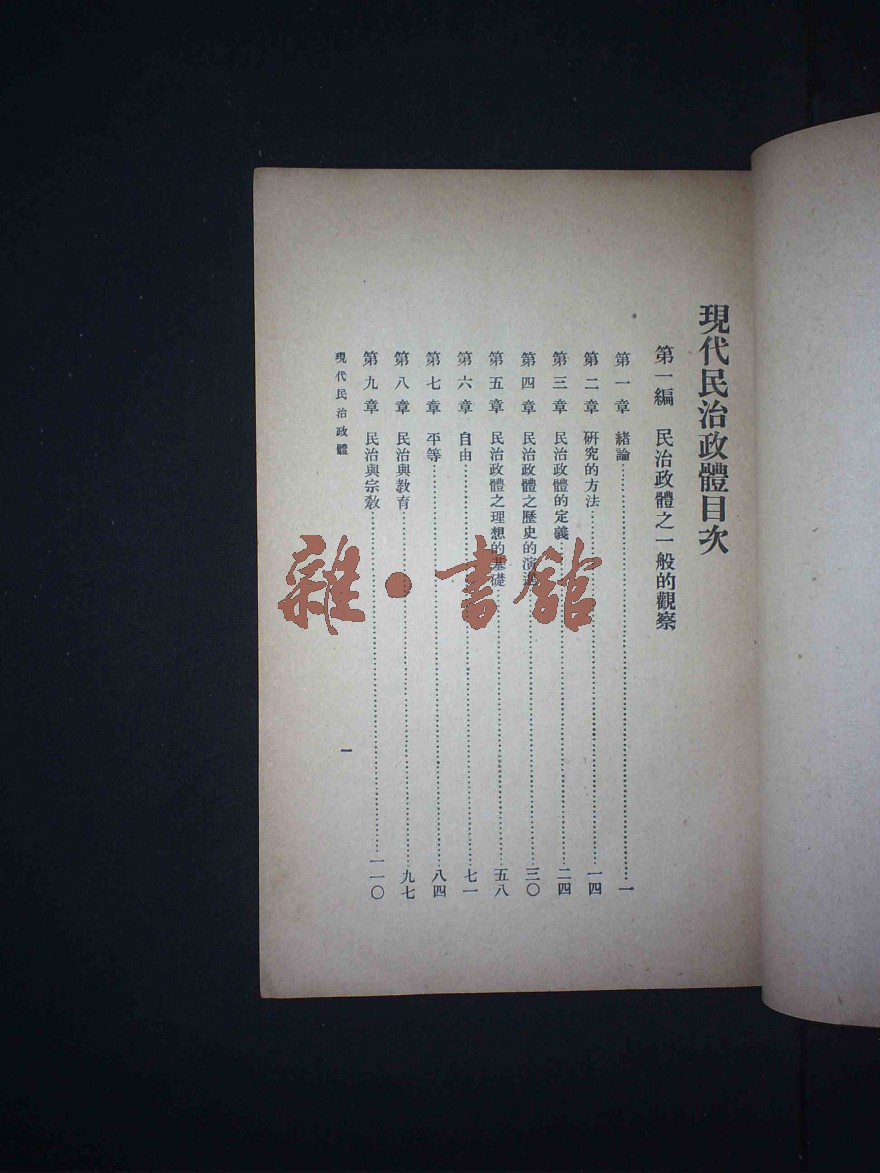 現代民治政體目次
第一編 民治政體之一般的觀察
第一章 緒論……一
第二章 研究的方法……一四
第三章 民治政體的定義……二四
第四章 民治政體之歷史的演進……三〇
第五章 民治政體之理想的基礎……五八
第六章 自由……七一
第七章 平等……八四
第八章 民治與教育……九七
第九章 民治與宗教……一一〇
現代民治政體
一
雜·書館